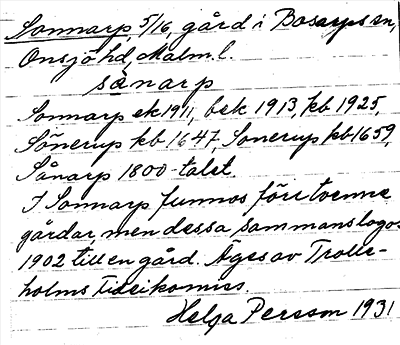 Sonnarp, 5/16, gård i Bosarps sn,
Onsjö hd, Malm. l.
sånarp
Sonnarp ek 1911, bek 1913, kb 1925,
Sönerup kb 1647, Sonerup kb 1659,
Sånarp 1800-talet.
I Sonnarp funnos förr tvenne
gårdar, men dessa sammanslogos
1902 till en gård. Äges av Trolle-
holms Fideikomiss.
Helga Persson 1931